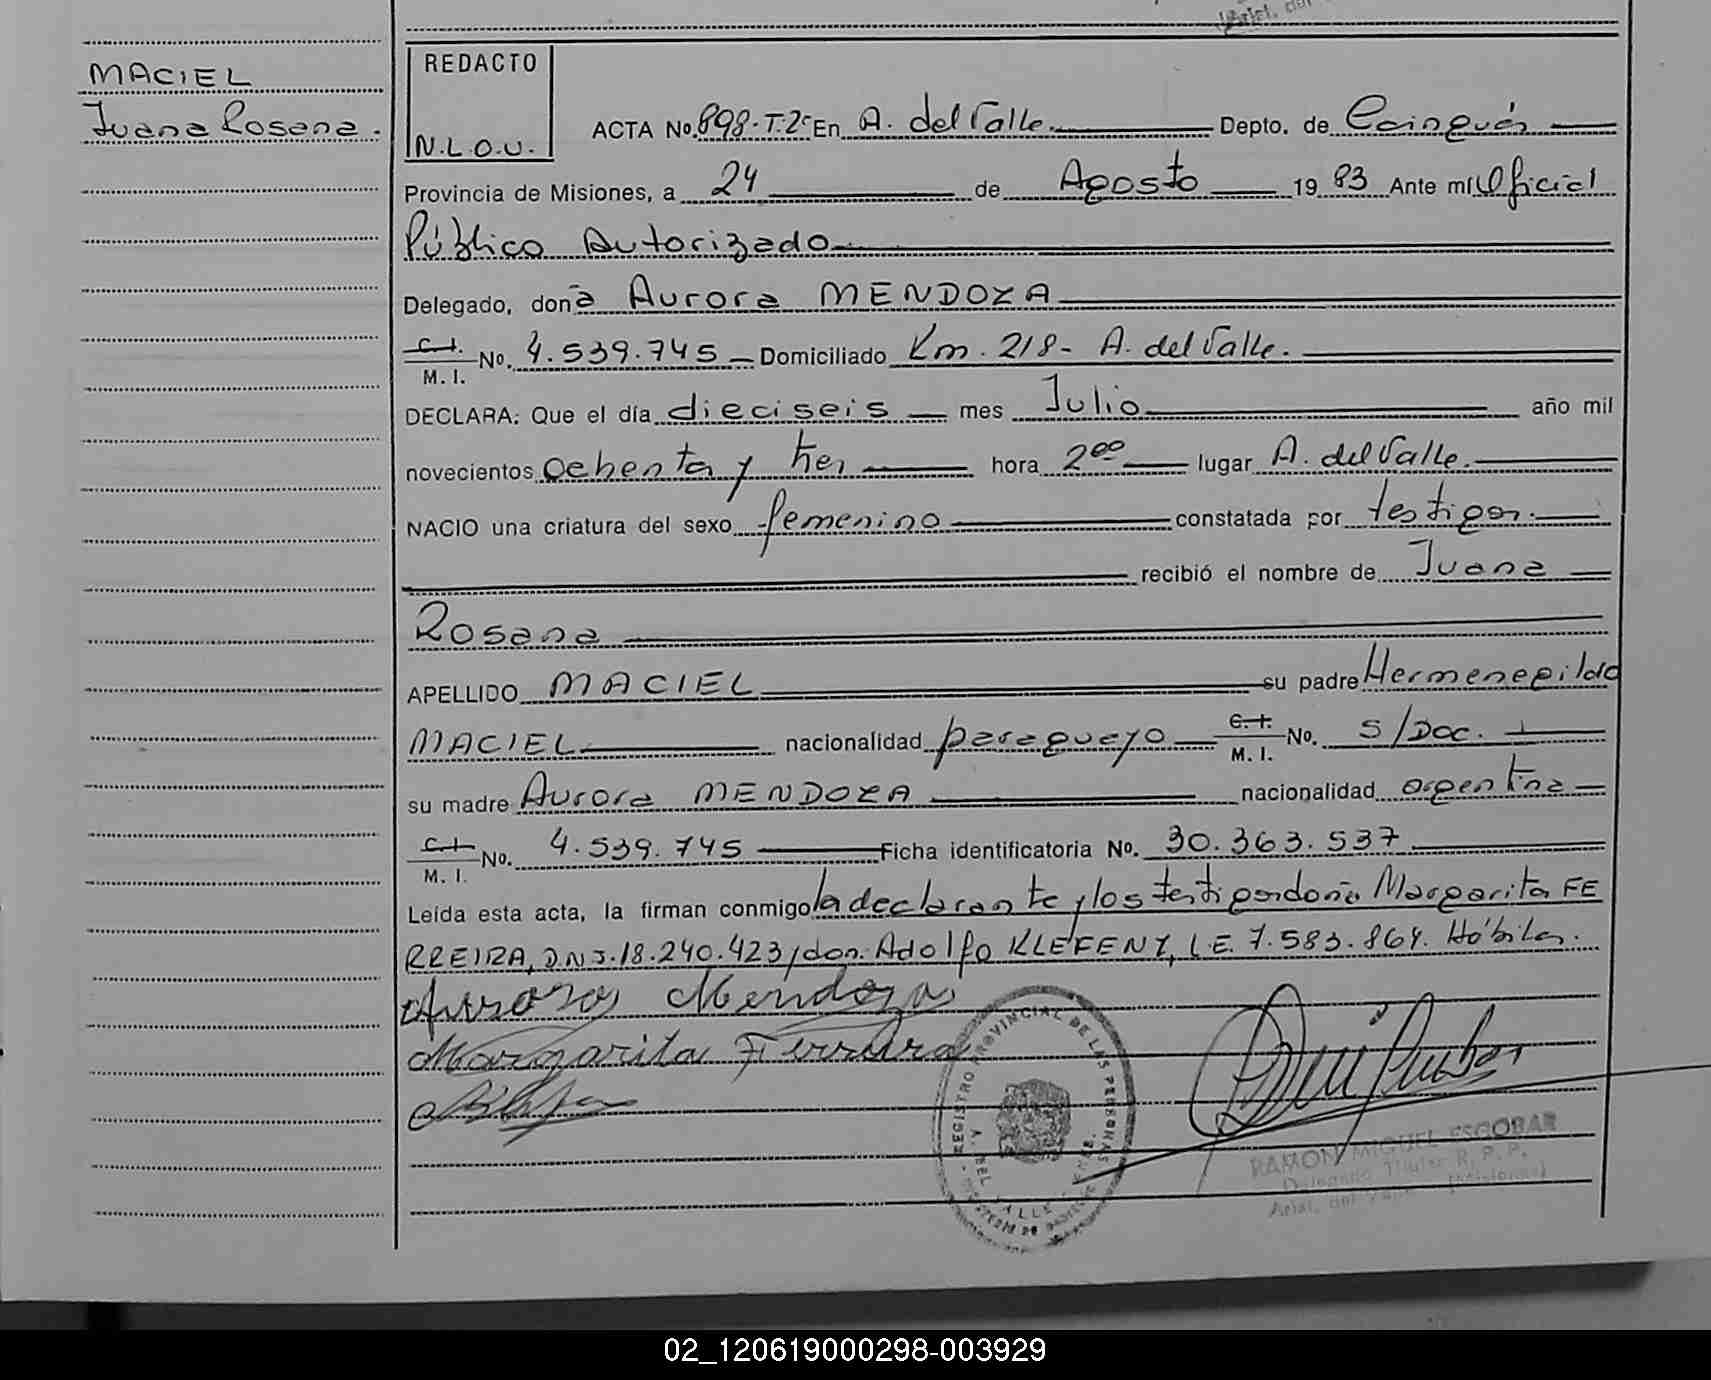 MACIEL
Juana Rosana.
REDACTO
N.L.O.U.
ACTA No. 898.T.2º En A. del Valle. Depto. de Cainguás
Provincia de Misiones, a 24 de Agosto 19 83 Ante mí Oficial
Público Autorizado
Delegado, doña Aurora MENDOZA
C.I. M.I. No. 4.539.745 Domiciliado Km. 218- A. del Valle.
DECLARA: Que el día dieciseis mes Julio año mil
novecientos ochenta y tres hora 2⁰⁰ lugar A. del Valle.
NACIO una criatura del sexo femenino constatada por testigos.
recibió el nombre de Juana
Rosana
APELLIDO MACIEL su padre Hermenegildo
MACIEL nacionalidad paraguayo C.I. M.I. No. S/Doc.
su madre Aurora MENDOZA nacionalidad argentina
C.I. M.I. No. 4.539.745 Ficha identificatoria No. 30.363.537
Leída esta acta, la firman conmigo la declarante y los testigos doña Margarita FE
RREIRA, D.N.I. 18.240.423 y don Adolfo KLEFENZ, L.E. 7.583.864. Hábiles.
Aurora Mendoza
Margarita Ferreira
REGISTRO PROVINCIAL DE LAS PERSONAS
RAMON MIGUEL ESCOBAR
Delegado Titular R. P. P.
02_120619000298-003929